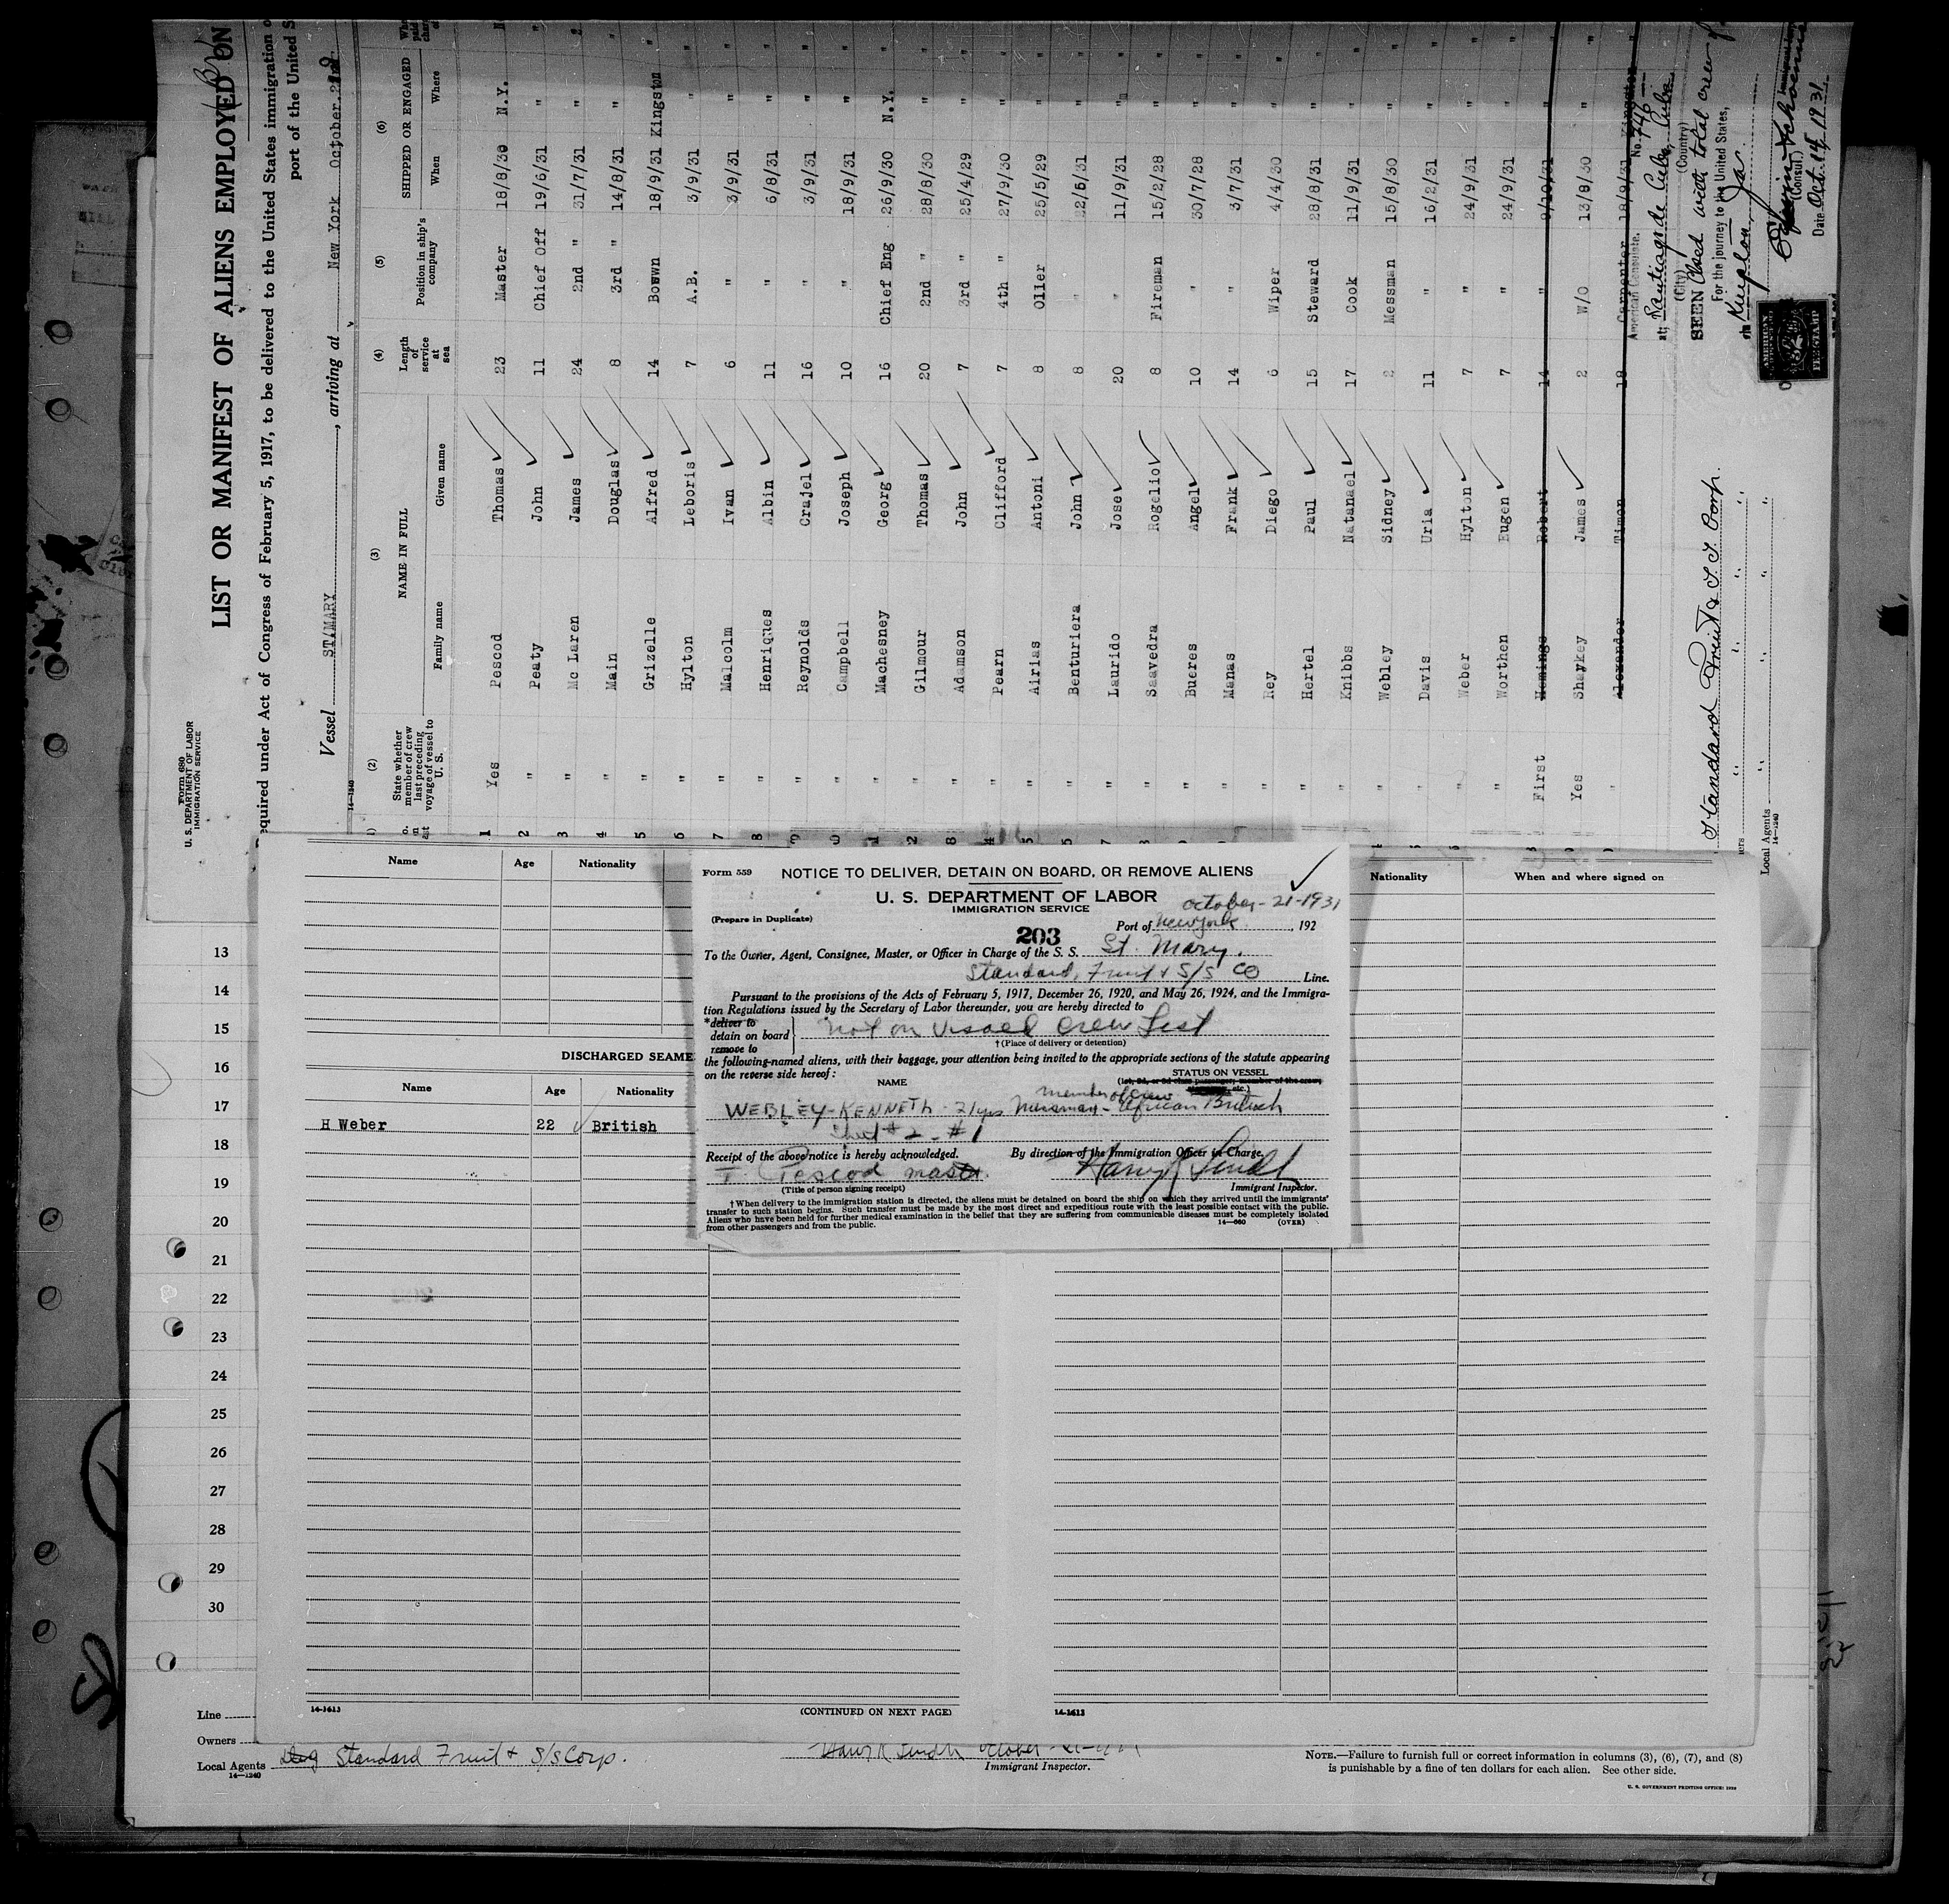 Form 680
U. S. DEPARTMENT OF LABOR
IMMIGRATION SERVICE
LIST OR MANIFEST OF ALIENS EMPLOYED ON
equired under Act of Congress of February 5, 1917, to be delivered to the United States immigration o
port of the United S
Vessel ST/MARY, arriving at New York October.
14-1240
(2) (3) (4) (5) (6)
State whether member of crew last preceding voyage of vessel to U. S.
NAME IN FULL
Family name Given name
Length of service at sea
Position in ship's company
SHIPPED OR ENGAGED
When Where
1 Yes Pescod Thomas 23 Master 18/8/30 N.Y.
2 " Peaty John 11 Chief Off 19/6/31 "
3 " Mc Laren James 24 2nd " 31/7/31 "
4 " Main Douglas 8 3rd " 14/8/31 "
5 " Grizelle Alfred 14 Boswn 18/9/31 Kingston
6 " Hylton Leboris 7 A.B. 3/9/31 "
7 " Malcolm Ivan 6 " 3/9/31 "
8 " Henriques Albin 11 " 6/8/31 "
9 " Reynolds Crajel 16 " 3/9/31 "
0 " Campbell Joseph 10 " 18/9/31 "
1 " Machesney Georg 16 Chief Eng 26/9/30 N.Y.
2 " Gilmour Thomas 20 2nd " 28/8/30 "
3 " Adamson John 7 3rd " 25/4/29 "
4 " Pearn Clifford 7 4th " 27/9/30 "
5 " Airias Antoni 8 Oiler 25/5/29 "
" Benturiera John 8 " 22/5/31 "
7 " Laurido Jose 20 " 11/9/31 "
" Saavedra Rogelio 8 Fireman 15/2/28 "
" Bueres Angel 10 " 30/7/28 "
" Manas Frank 14 " 3/7/31 "
" Rey Diego 6 Wiper 4/4/30 "
" Hertel Paul 15 Steward 28/8/31 "
" Knibbs Natanael 17 Cook 11/9/31 "
" Webley Sidney 2 Messman 15/8/30 "
" Davis Uria 11 " 16/2/31 "
" Weber Hylton 7 " 24/9/31 "
" Worthen Eugen 7 " 24/9/31 "
First Hemings Robert 14 " 9/10/31 "
Yes Sharkey James 2 W/O 13/8/30 "
" Alexander Timon 18 Carpenter 18/9/31 Kingston
American Consulate. No. 746
at; Santiago de Cuba, Cuba
(City) (Country)
SEEN Used with total crew of
For the journey to the United States,
via Kingston, Ja.
(Consul.)
Date Oct. 14 1931
AMERICAN
FEE STAMP
Standard Fruit & S. S. Corp.
Local Agents
14-1240
Name Age Nationality
Nationality When and where signed on
Form 559 NOTICE TO DELIVER, DETAIN ON BOARD, OR REMOVE ALIENS
U. S. DEPARTMENT OF LABOR
IMMIGRATION SERVICE
October-21-1931
(Prepare in Duplicate)
Port of New York, 192
203
To the Owner, Agent, Consignee, Master, or Officer in Charge of the S. S. St. Mary.
Standard, Fruit & S/S CO Line.
Pursuant to the provisions of the Acts of February 5, 1917, December 26, 1920, and May 26, 1924, and the Immigra-
tion Regulations issued by the Secretary of Labor thereunder, you are hereby directed to
*deliver to
detain on board
remove to
Not on Visaed Crew List
†(Place of delivery or detention)
the following-named aliens, with their baggage, your attention being invited to the appropriate sections of the statute appearing
on the reverse side hereof:
NAME STATUS ON VESSEL
(1st, 2d, or 3d class passenger, member of the crew, etc.)
member of crew
WEBLEY-KENNETH 21 yrs Messman - African British
Sheet # 2 - # 1
Receipt of the above notice is hereby acknowledged. By direction of the Immigration Officer in Charge,
T. Pescod master. Harry R Lindh
(Title of person signing receipt) Immigrant Inspector.
†When delivery to the immigration station is directed, the aliens must be detained on board the ship on which they arrived until the immigrants'
transfer to such station begins. Such transfer must be made by the most direct and expeditious route with the least possible contact with the public.
Aliens who have been held for further medical examination in the belief that they are suffering from communicable diseases must be completely isolated
from other passengers and from the public.
14-660 (OVER)
DISCHARGED SEAME
Name Age Nationality
H Weber 22 British
13
14
15
16
17
18
19
20
21
22
23
24
25
26
27
28
29
30
14-1613 (CONTINUED ON NEXT PAGE) 14-1613
Line
Owners
Local Agents Standard Fruit & S/S Corp.
14-1240
Immigrant Inspector.
NOTE.—Failure to furnish full or correct information in columns (3), (6), (7), and (8)
is punishable by a fine of ten dollars for each alien. See other side.
U. S. GOVERNMENT PRINTING OFFICE: